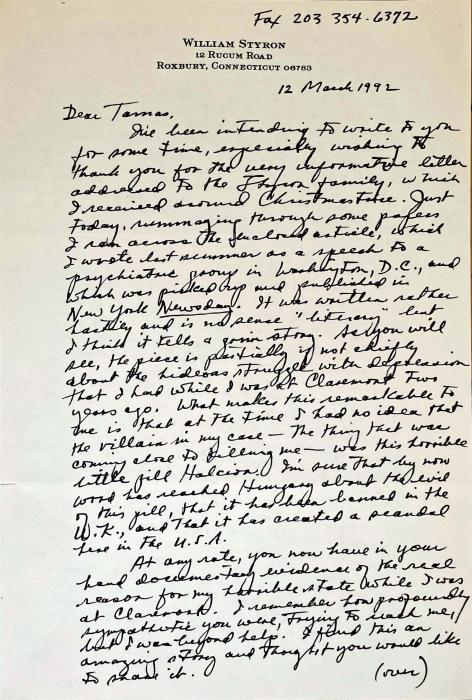 Fax 203 354-6372
WILLIAM STYRON
12 RUCUM ROAD
ROXBURY, CONNECTICUT 06783
12 March 1992
Dear Tamas,
I've been intending to write to you
for some time, especially wishing to
thank you for the very informative letter
addressed to the Styron family, which
I received around Christmastime. Just
today, rummaging through some papers
I ran across the enclosed article, which
I wrote last summer as a speech to a
psychiatric group in Washington, D.C., and
which was picked up and published in
New York Newsday. It was written rather
hastily and is no sense "literary" but
I think it tells a grim story. As you will
see, the piece is partially if not chiefly
about the hideous struggle with depression
that I had while I was at Claremont two
years ago. What makes this remarkable to
me is that at the time I had no idea that
the villain in my case — the thing that was
coming close to killing me — was this horrible
little pill Halcion. I'm sure that by now
word has reached Hungary about the evil
of this pill, that it has been banned in the
U.K., and that it has created a scandal
here in the U.S.A.
At any rate, you now have in your
hand documentary evidence of the real
reason for my horrible state while I was
at Claremont. I remember how profoundly
sympathetic you were, trying to reach me,
but I was beyond help. I find this an
amazing story and thought you would like
to share it.
(over)